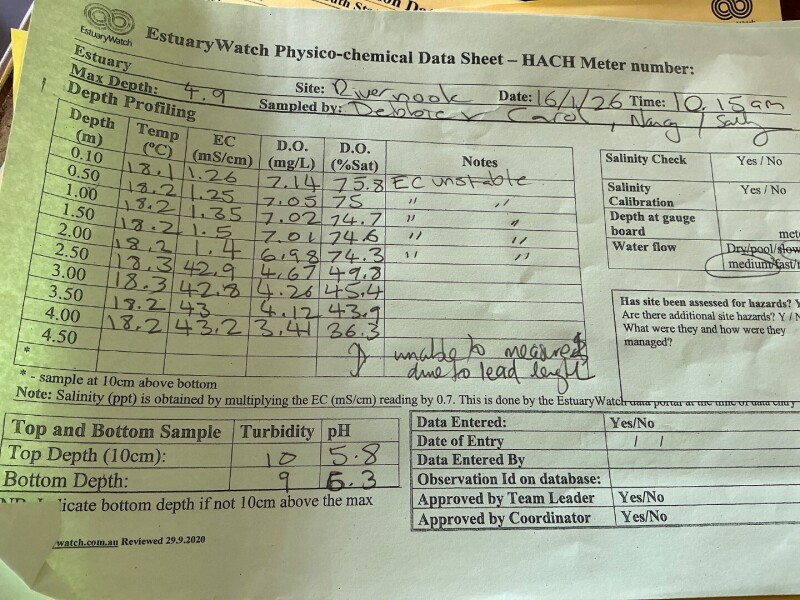 EstuaryWatch
EstuaryWatch Physico-chemical Data Sheet – HACH Meter number:
Estuary Site: Rivernook Date: 16/1/26 Time: 10.15am
Max Depth: 4.9 Sampled by: Debbie & Carol, Nancy / Sally
Depth Profiling
Depth (m) Temp (°C) EC (mS/cm) D.O. (mg/L) D.O. (%Sat) Notes
0.10 18.1 1.26 7.14 75.8 EC unstable
0.50 18.2 1.25 7.05 75 " "
1.00 18.2 1.35 7.02 74.7 " "
1.50 18.2 1.5 7.01 74.6 " "
2.00 18.2 1.4 6.98 74.3 " "
2.50 18.3 42.9 4.67 49.8
3.00 18.3 42.8 4.26 45.4
3.50 18.2 43 4.12 43.9
4.00 18.2 43.2 3.41 36.3
4.50
* unable to measure
due to lead lenght
* - sample at 10cm above bottom
Note: Salinity (ppt) is obtained by multiplying the EC (mS/cm) reading by 0.7. This is done by the EstuaryWatch data portal at the time of data entry
Salinity Check Yes / No
Salinity Calibration Yes / No
Depth at gauge board
Water flow Dry/pool/slow
medium/fast/
Has site been assessed for hazards? Y
Are there additional site hazards? Y / N
What were they and how were they
managed?
Top and Bottom Sample Turbidity pH
Top Depth (10cm): 10 5.8
Bottom Depth: 9 6.3
indicate bottom depth if not 10cm above the max
Data Entered: Yes/No
Date of Entry / /
Data Entered By
Observation Id on database:
Approved by Team Leader Yes/No
Approved by Coordinator Yes/No
watch.com.au Reviewed 29.9.2020